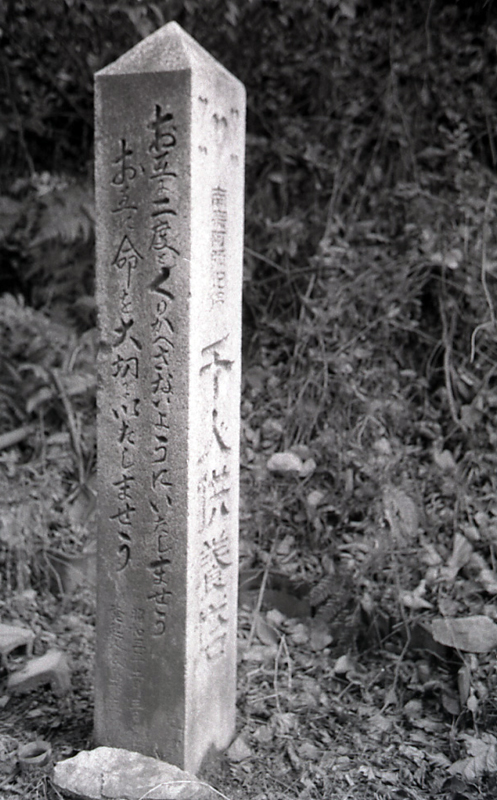 お互に二度とくりかへさないようにいたしませう
お互に命を大切にいたしませう
南無阿弥陀仏
千人供養塔